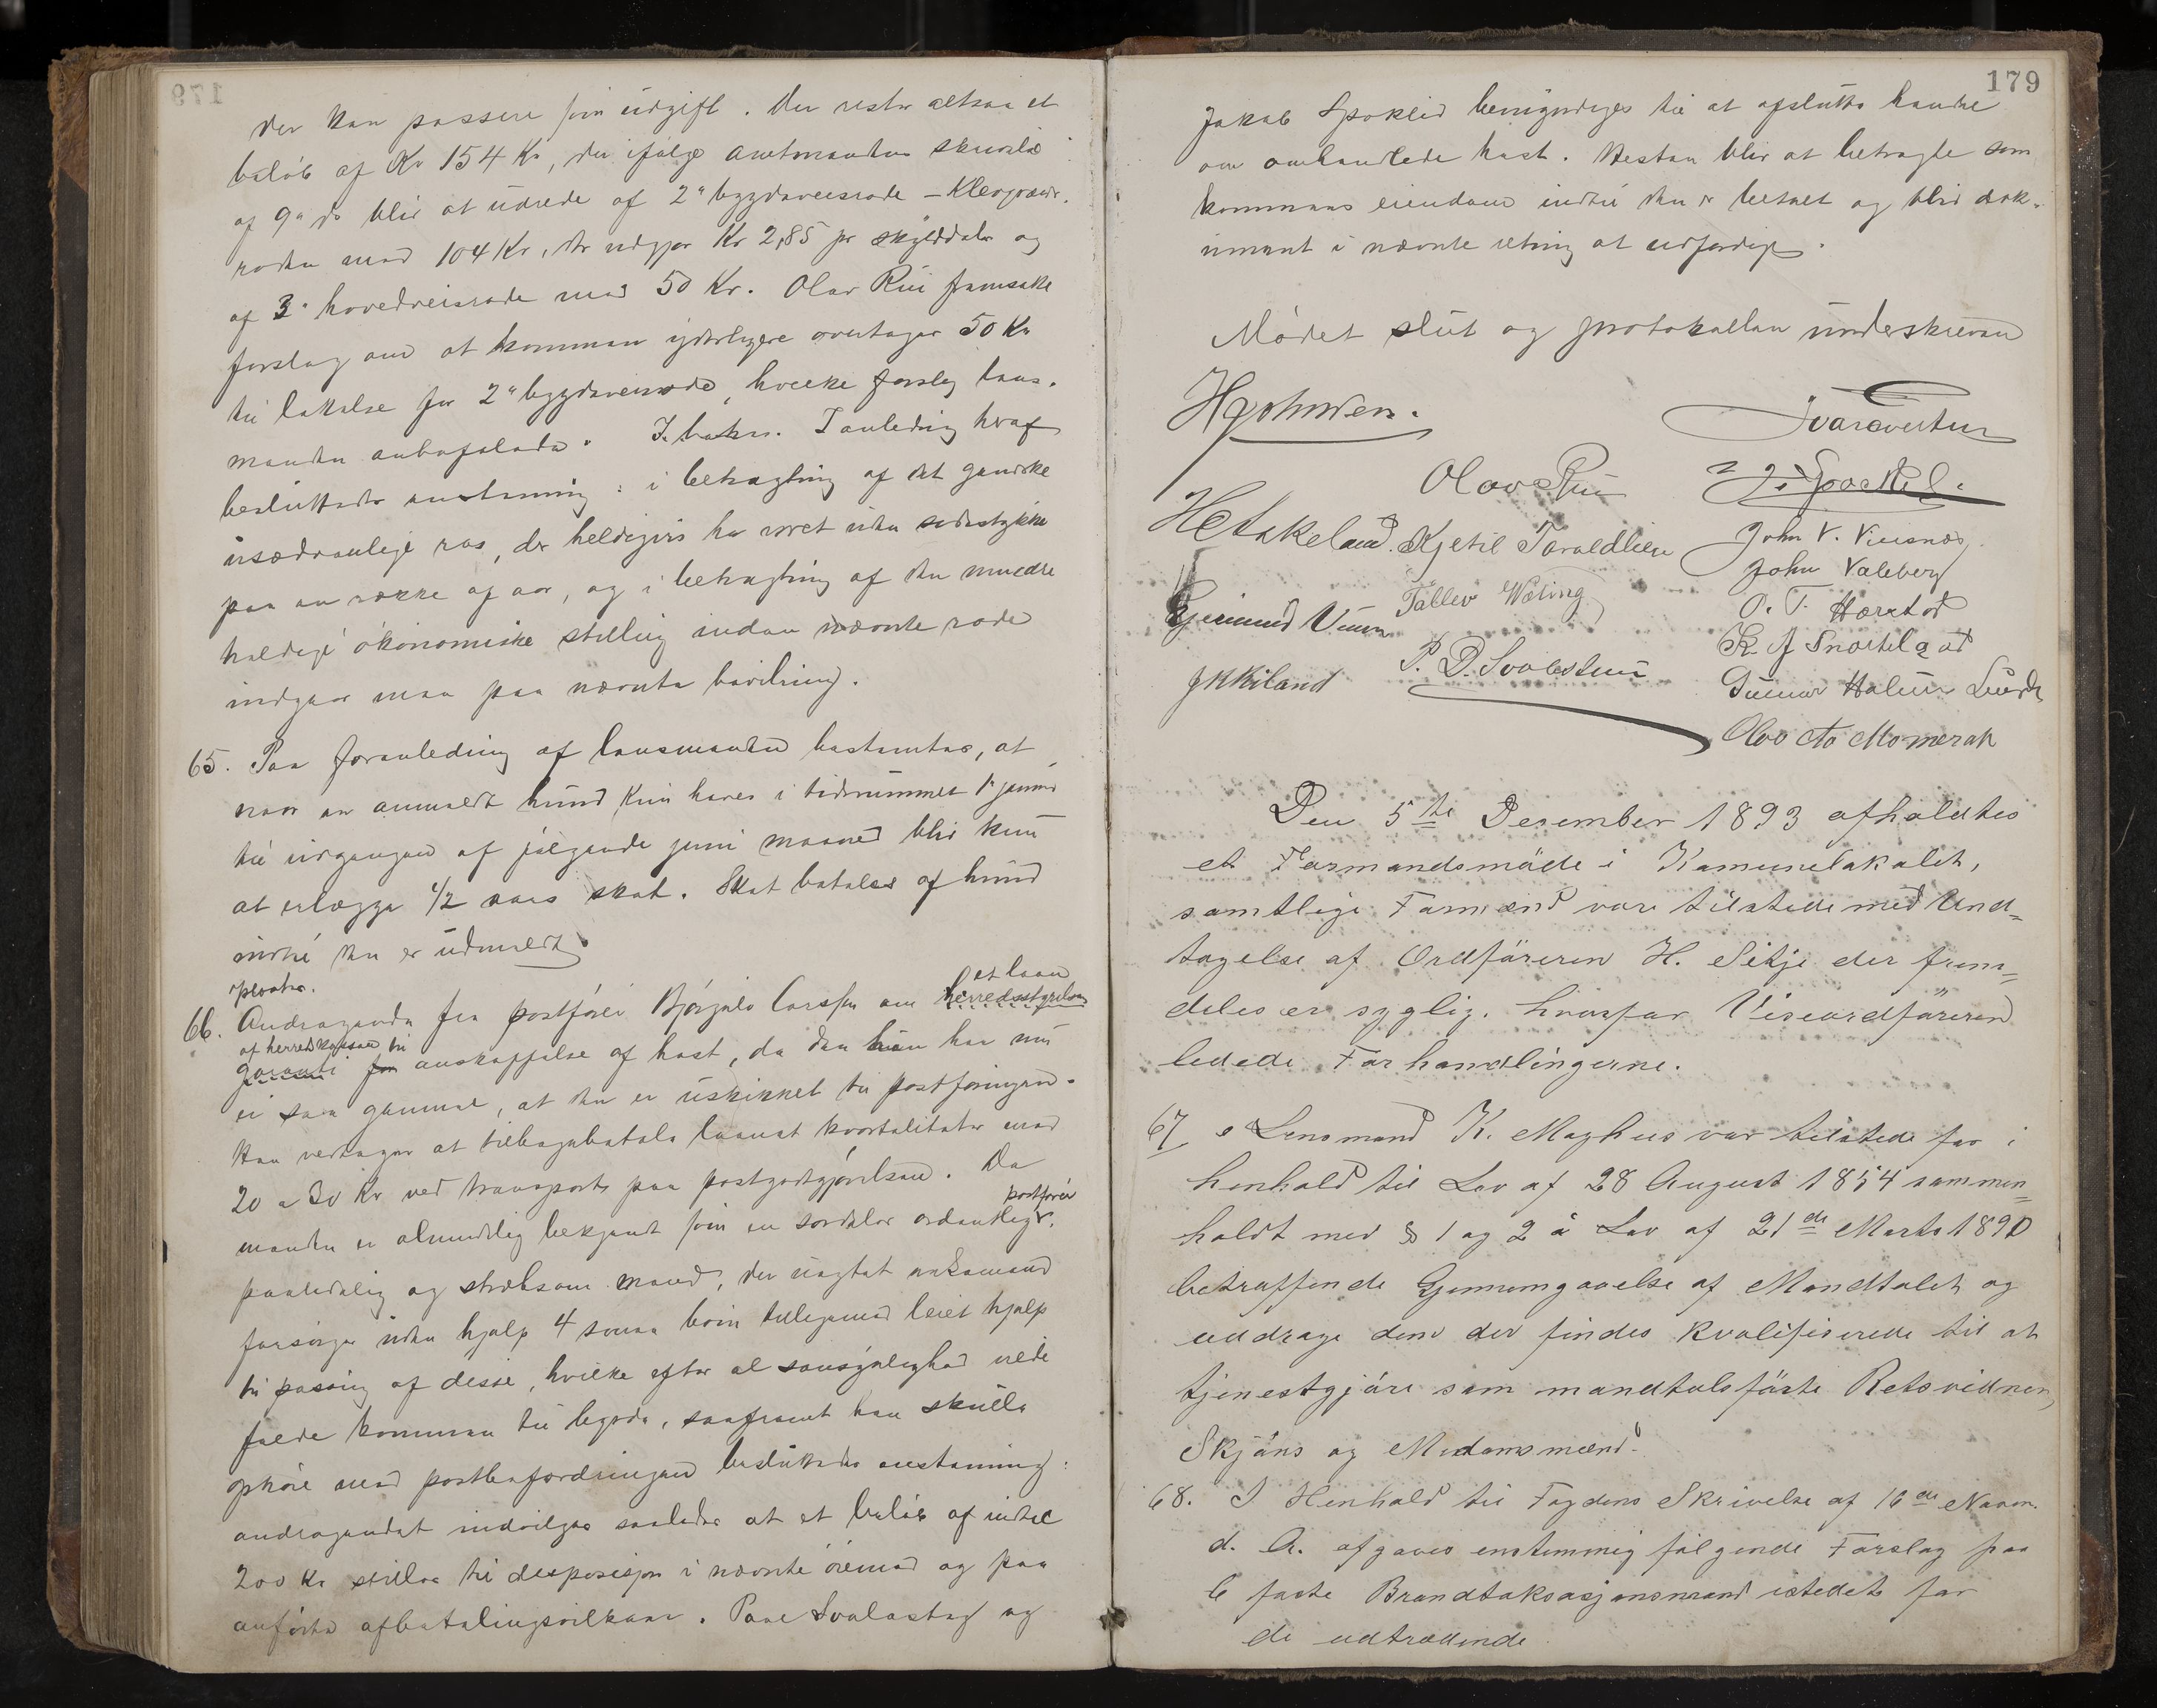 der kan passere som udgift. Der rester altsaa et
beløb af Kr 154 Kr, der ifølge amtmandens skrivelse
af 9de ds blir at udrede af 2den bygdeveisrode –
roden med 104 Kr, der udgjør Kr 2,85 pr skylddaler og
af 3die hovedveisrode med 50 Kr. Olav Rui fremsatte
forslag om at kommunen yderligere overtager 50 Kr
til lettelse for 2den bygdeveisrode, hvilket forslag lens-
manden anbefalede. I anledning hvoraf
besluttedes enstemmig: i betragtning af det ganske
usædvanlige ras, der heldigvis har været uden sidestykke
paa en række af aar, og i betragtning af den mindre
heldige økonomiske stilling inden nævnte rode
indgaar man paa nævnte bevilgning.
65. Paa foranledning af lensmanden bestemtes, at
naar en anmeldt hund kun haves i tidsrummet 1 januar
til udgangen af følgende juni maaned blir kun
at erlægge 1/2 aars skat. Skat betales af hund
indtil den er udmeldt
et laan
66. Andragende fra postfører Bjørgulv Larssen om herredsstyrelsens
af herredskassen til
garanti for anskaffelse af hest, da den han har nu
er saa gammel, at den er uskikket til postføringen.
Han vedtager at tilbagebetale laanet kvartaliter med
20 a 30 Kr ved transport paa postgodtgjørelsen. Da
postfører
manden er almindelig bekjendt som en særdeles ordentlig,
paalidelig og stræbsom mand, der uagtet enkemand
forsørger uden hjælp 4 smaa børn tilligemed leiet hjælp
til pasning af disse, hvilke efter al sansynlighed vilde
falde kommunen til byrde, saafremt han skulle
ophøre med postbefordringen besluttedes enstemmig:
andragendet indvilges saaledes at et beløb af indtil
200 Kr stilles til disposisjon i nævnte øiemed og paa
anførte afbetalingsvilkaar. Paal Svalastog og
179
Jakob Spokkeli bemyndiges til at afslutte handel
om omhandlede hest. Hesten blir at betragte som
kommunens eiendom indtil den er betalt og blir dok-
ument i nævnte retning at udfærdige.
Mødet slut og protokollen underskreven
Olav Rui
Kjetil Taraldlien
John V. Vinsnæs
John Valeberg
O. T. Harstad
Gunnar Halvor
J K Kiland
Den 5te Desember 1893 afholdtes
et Formandsmøde i Komunelokalet,
samtlige Formænd vare tilstede med Und=
tagelse af Ordføreren H. Sitje der frem=
deles er syglig. hvorfor Viseordføreren
ledede Forhandlingerne.
67, Lensmand K. Maghus var tilstede for i
henhold til Lov af 28 August 1854 sammen=
holdt med § 1 og 2 i Lov af 21de Marts 1890
betræffende Gjennemgaaelse af Mandtalet og
uddrage dem der findes kvalifiserede til at
tjenestgjøre som mandtalsførte Retsvidner,
Skjøns og Medomsmænd.
68. I Henhold til Fogdens Skrivelse af 16de Novem.
d. A. afgaves enstemmig følgende Forslag paa
6 faste Brandtaksasjonsmænd istedet for
de udtrædende